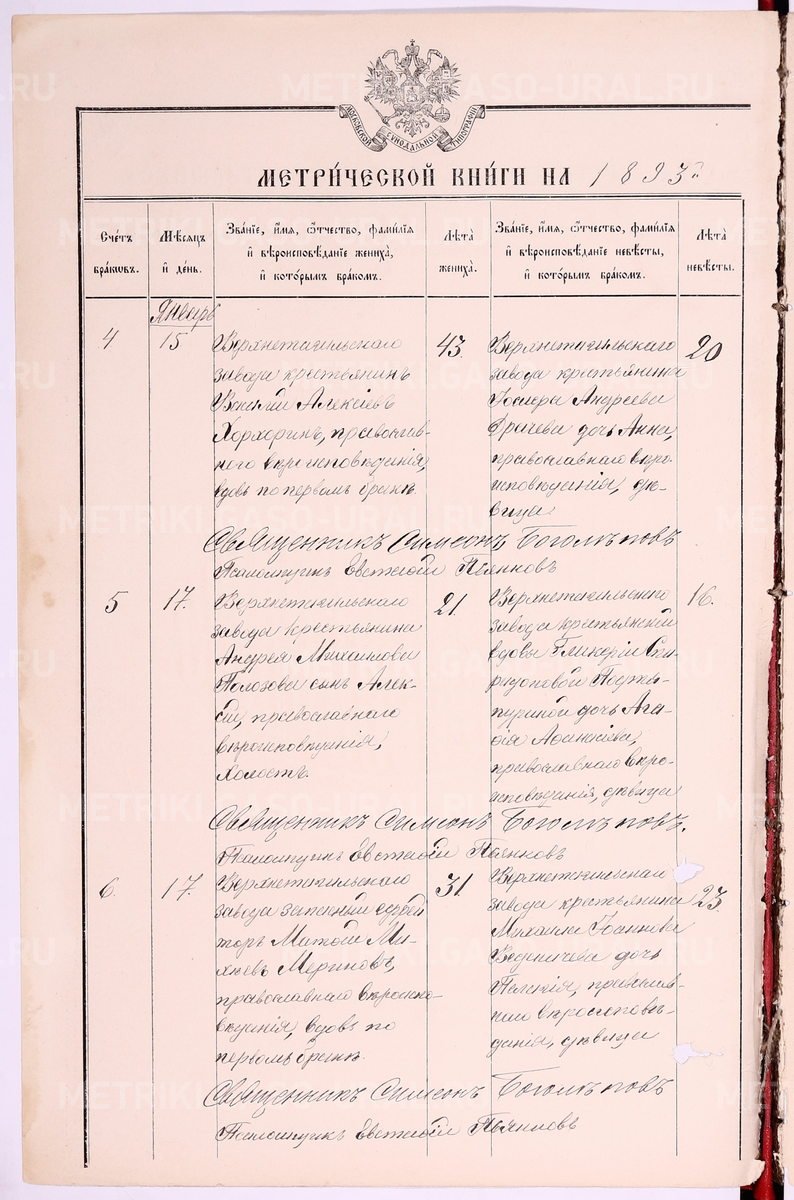 МОСКОВСКОЙ СУНОДАЛЬНОЙ ТИПОГРАФІИ
МЕТРИ́ЧЕСКОЙ КНИ́ГИ НА 1893 г.
Сче́тъ бра́кѡвъ.
Мѣ́сяцъ и҆ де́нь.
Зва́нїе, и҆́мя, ѻ҆́тчество, фами́лїя и҆ вѣроисповѣ́данїе жениха̀, и҆ кото́рымъ бра́комъ.
Лѣ́та жениха̀.
Зва́нїе, и҆́мя, ѻ҆́тчество, фами́лїя и҆ вѣроисповѣ́данїе невѣ́сты, и҆ кото́рымъ бра́комъ.
Лѣ́та невѣ́сты.
Январь
4
15
Верхнетагильскаго
завода крестьянинъ
Алексѣевъ
Хорхоринъ, православ-
наго вѣроисповѣданія,
вдовъ по первомъ бракѣ.
43.
Верхнетагильскаго
завода крестьянина
Андреева
дочь Анна,
православнаго вѣро-
исповѣданія, дѣ-
вица
20
Священникъ Симеонъ Боголѣповъ
Псаломщикъ Евстафій Пьянковъ
5
17.
Верхнетагильскаго
завода крестьянина
Андрея Михаилова
Полозова сынъ Алек-
сій, православнаго
вѣроисповѣданія,
холостъ.
21.
Верхнетагильскаго
завода крестьянской
вдовы Гликеріи Спи-
ридоновой
дочь Ага-
фія Афанасіева,
православнаго вѣро-
исповѣданія, дѣвица
16.
Священникъ Симеонъ Боголѣповъ.
Псаломщикъ Евстафій Пьянковъ
6.
17.
Верхнетагильскаго
завода запасный
Матфій Ми-
хѣевъ Мериновъ,
православнаго вѣроиспо-
вѣданія, вдовъ по
первомъ бракѣ.
31.
Верхнетагильскаго
завода крестьянина
Михаила Іоаннова
Веденичева дочь
Пелагія, православ-
наго вѣроисповѣ-
данія, дѣвица
23.
Священникъ Симеонъ Боголѣповъ
Псаломщикъ Евстафій Пьянковъ
METRIKI.GASO-URAL.RU